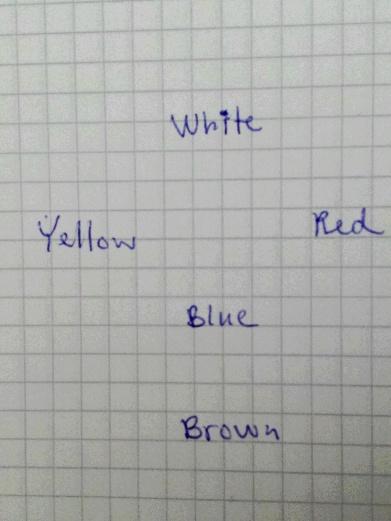 White
Yellow Red
Blue
Brown